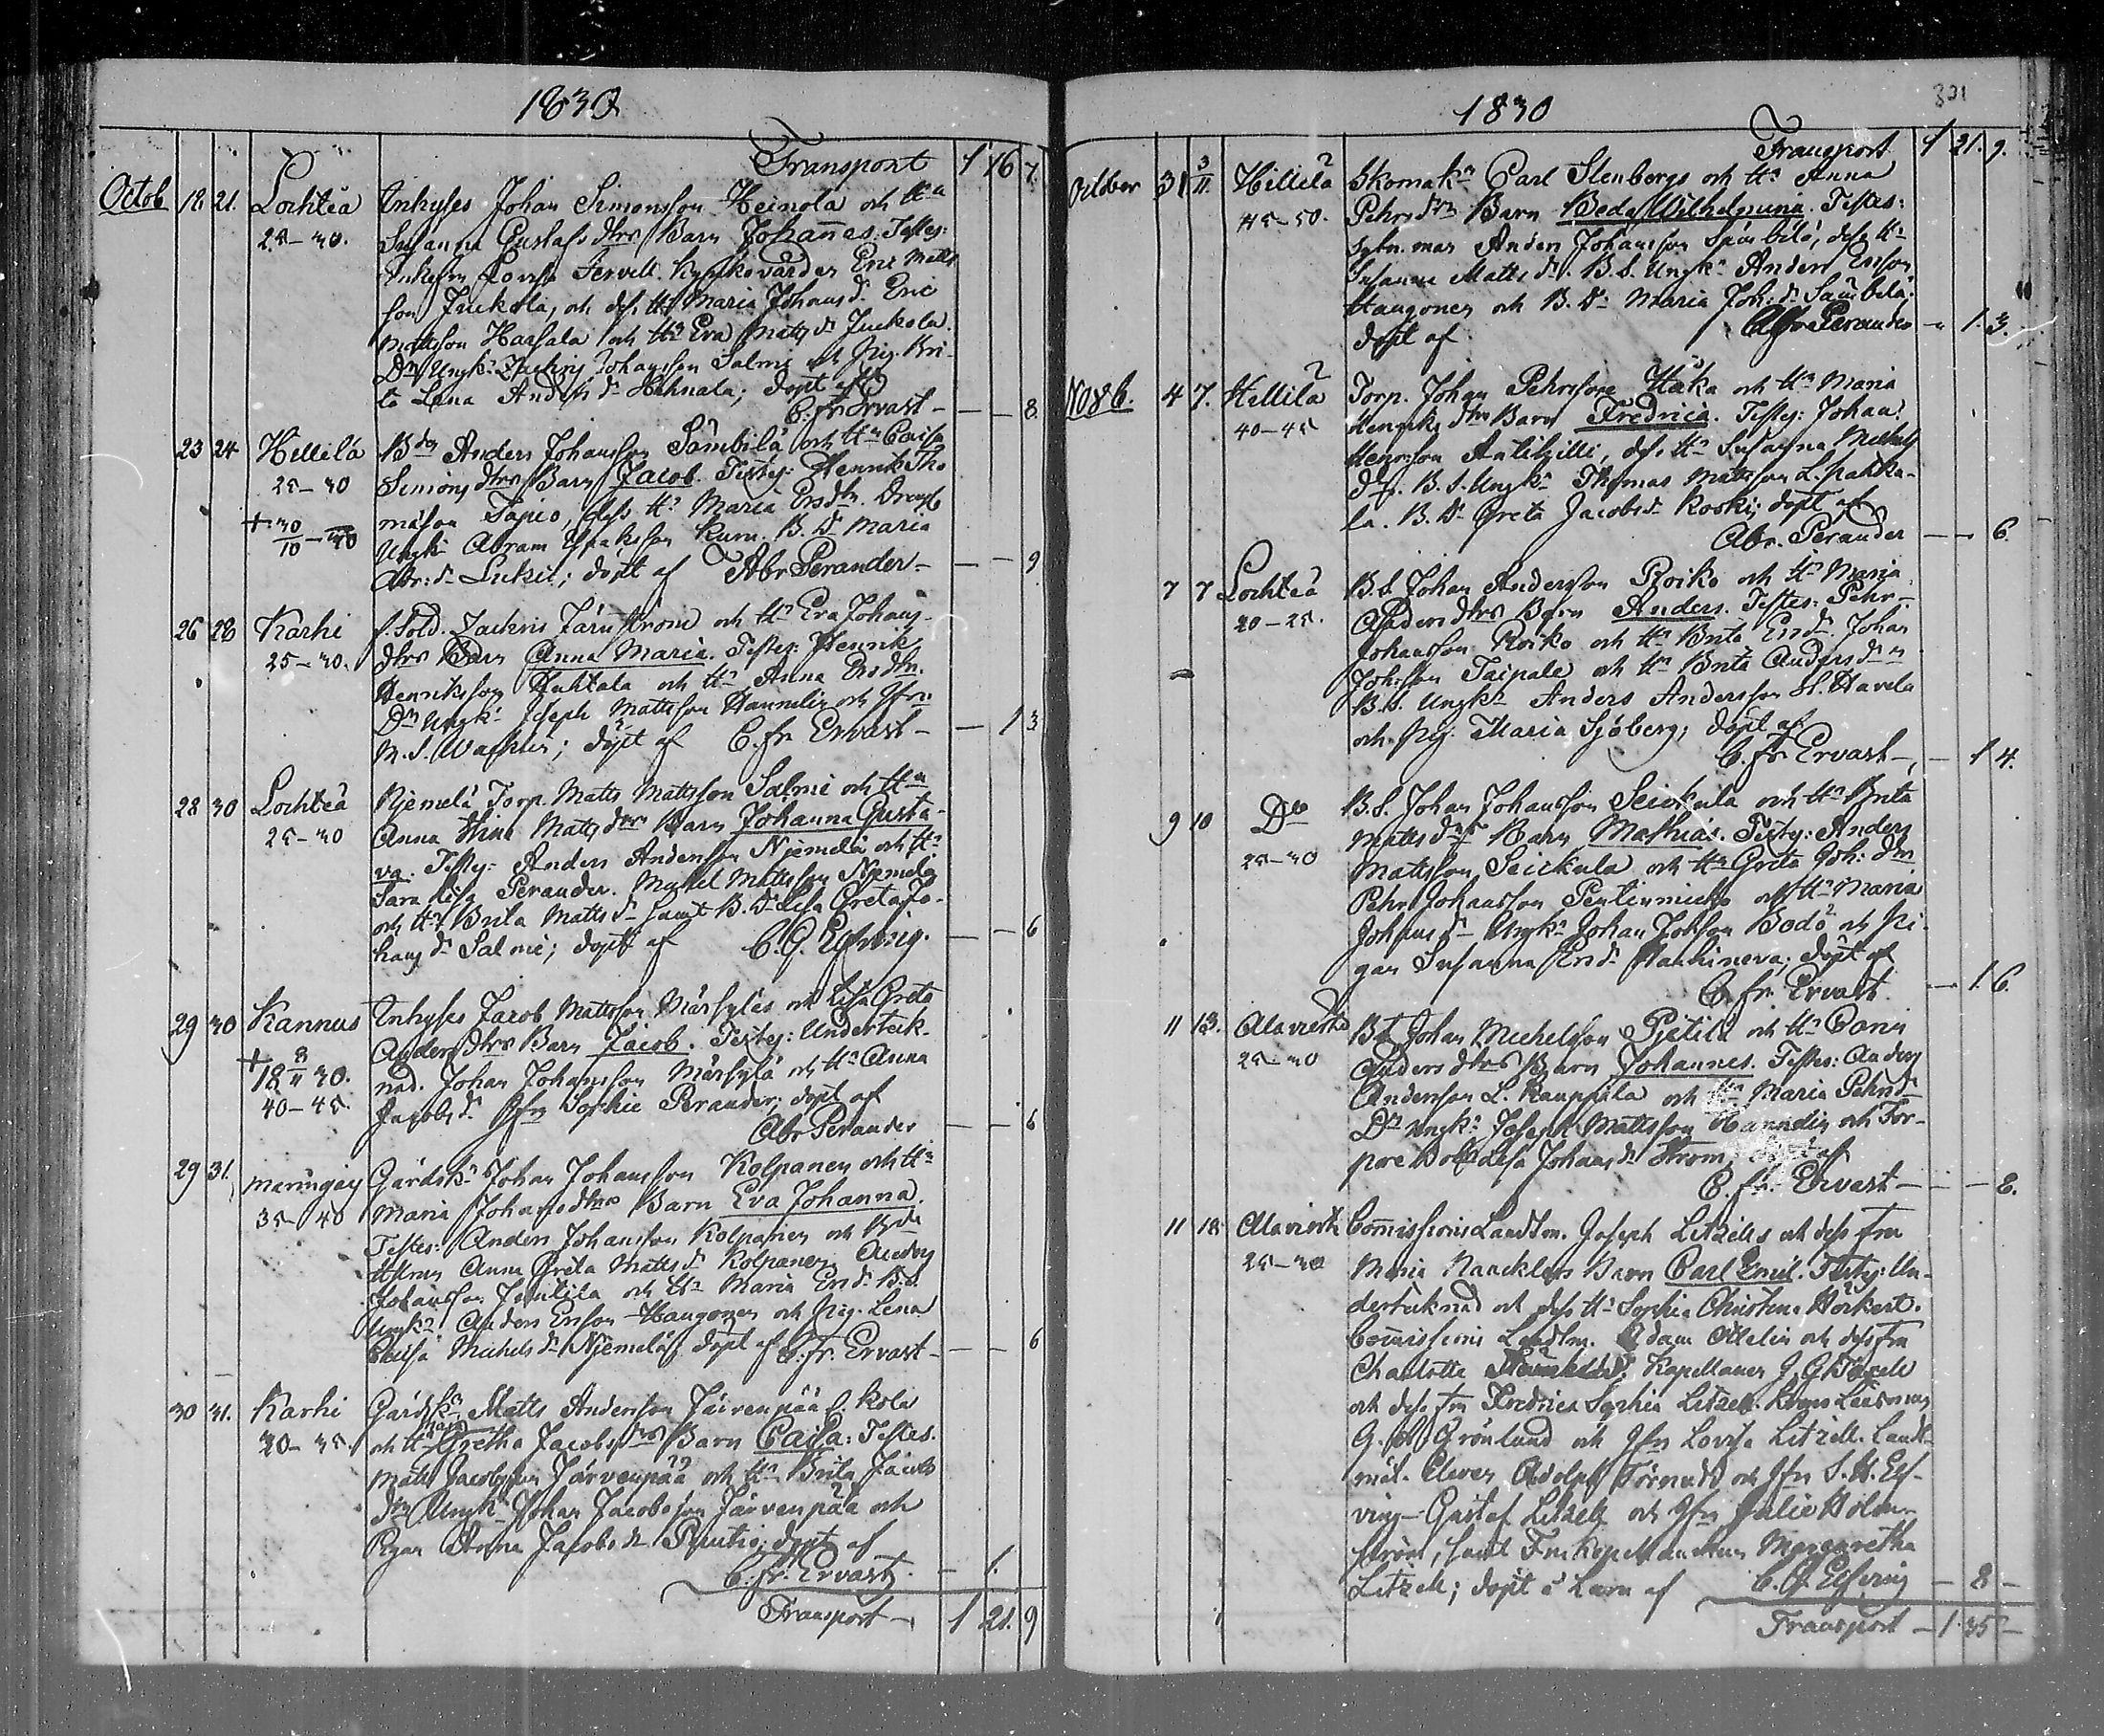 1830
Transport 1 16 7.
Octob 18. 21. Lochteå Inhyses Johan Simonsson Heinola och H:n
25–30. Susanna Gustafs dtrs Barn Johannes. Testes:
Lovisa Kyrkovärden Eric Matts
son Juckola, och dess H:u Maria Johans d:r Eric
Mattsson Harsala och H:u Eva Matts d:r Juckola.
D:n Ungk: Zachris Johansson Salmi och Pig. Bri-
ta Lena Anders d:r döpt af
C. Fr. Ervast – — — 8.
23 24 Hillilä B:dn Anders Johansson Sämbilä och H:u Caisa
25–30 Simons dtrs Barn Jacob. Testes: Henrik Tho
+ 30/10 – 30 masson Tapio, dess H:u Maria Ersdtr.
Ungk: Abram Isaksson Kuru. B. D:r Maria
Abr: d:r Lukil; döpt af Abr Perander – — — 9
26 28 Karhi f. Sold. Zachris Järnström och H:u Eva Johans
25–30. dtrs Barn Anna Maria. Testes: Henrik
Henriksson Huhtala och H:u Anna Ersdtr.
D:n Ungk: Joseph Mattsson Hannelin och Jfru
M. S. döpt af C. Fr Ervast – — 1 3
28 30 Lochteå Njemelä Torp. Matts Mattsson Salmi och H:u
25–30 Anna Stina Matts dtrs Barn Johanna Gusta-
va. Testes: Anders Andersson Njemelä och H:u
Sara Lisa Perander. Michel Mattsson Njemelä
och H:u Brita Matts d:r samt B. D:r Lisa Greta Jo-
hans d:r Salmi; döpt af C. G. Elfving. — — 6
29 30 Kannus Inhyses Jacob Mattsson Märsylä och Lisa Greta
+ 18 8/11 30. Anders dtrs Barn Jacob. Testes: Underteck-
40–45. nad. Johan Johansson Märsylä och H:u Anna
Jacobs d:r Jfru Sophie Perander; döpt af
Abr Perander — — 6
29 31. Maringais Gårdsk: Johan Johansson Kolpanen och H:u
35–40 Maria Johans dtrs Barn Eva Johanna.
Testes: Anders Johansson Kolpanen och
Anna Greta Matts d:r Kolpanen. Anders
Johansson Jentilä och H:u Maria Ers d:r B.S.
Ungk: Anders Ersson Haugonen och Pig. Lena
Caisa Michels d:r Njemelä; döpt af C. Fr. Ervast – — — 6
30 31. Karhi Gårdsk: Matts Andersson Järvenpää l. Kola
30–35. och H:u Maria Gretha Jacobs dtrs Barn Caisa: Testes.
Matts Jacobsson Järvenpää och H:u Brita Jacobs
d:r Ungk: Johan Jacobsson Järvenpää och
Pigan Anna Jacobs d:r döpt af
C. Fr. Ervast. – 6.
Transport – 1 21. 9
1830
301
Transport 1 21. 9.
October 31 3/11 Hillilä Skomak:n Carl Stenbergs och H:u Anna
45–50. Pehrs dtrs Barn Beda Wilhelmina. Testes:
Anders Johansson Sämbilä, dess H:u
Susanna Matts d:r. B.S. Ungk: Anders Ersson
Haugonen och B. D:r Maria Joh: d:r Sämbilä;
döpt af Abr Perander – 1. 3.
Novb. 4 7. Hillilä Torp. Johan Pehrsson Haka och H:u Maria
40–45 Henriks dtrs Barn Fredrica. Testes: Johan
Henrsson Antilzilli, dess H:u Susanna Michels
d:r. B. S. Ungk: Thomas Mattsson L. Pahka-
la. B. D:r Greta Jacobs d:r Koski; döpt af
Abr. Perander — — 6.
7 7 Lochteå B. S. Johan Andersson Roiko och H:u Maria
20–25. Anders dtrs Barn Anders. Testes: Pehr
Johansson Roiko och H:u Brita Ersd:r. Johan
Johsson Taipale och H:u Brita Anders d:r
B. S. Ungk: Anders Andersson St. Havela
och Pig. Maria Sjöberg; döpt af
C. Fr Ervast –, — 1 4.
9 10 D:o B. S. Johan Johansson Seickula och H:u Brita
25–30 Matts dtrs Barn Mathias. Testes: Anders
Mattsson Seickula och H:u Greta Joh: dtr
Pehr Johansson Pentinmicko och H:u Maria
Johans d:r Ungk: Johan Johsson Bodö och Pi-
gan Susanna Ers d:r Hauhineva; döpt af
C. Fr Ervast. — 1. 6.
11 13. Alaviirre B.S Johan Michelsson Pjetilä och H:u Carin
25–30 Anders dtrs Barn Johannes. Testes: Anders
Andersson L. Kauppila och H:u Maria Pehrsd:r
D:n Ungk: Joseph Mattsson Hannelin och Tor-
pare Lisa Johans d:r Ström; döpt af
C. Fr. Ervast — — — 8.
11 18. Alaviirre Com̄issions Landtm. Joseph Litzells och dess fru
25–30 Maria Naecklers Barn Carl Emil. Testes: Un-
dertecknad och dess H:u Sophia Christina Hörkert.
Com̄issions Landtm. Adam Ottelin och dess fru
Charlotte Kapellanen J. G. Törell
och dess fru Fredrica Sophia Litzell. Krono Länsman
G. Grönlund och Jfru Lovisa Litzell. Landt-
mät. Eleven Adolph Törnudd och Jfru S. H. Elf-
ving – Gustaf Litzell och Jfru Julie Holm-
ström, samt Margaretha
Litzell; döpt i Larn af C. G. Elfving – 8 –
Transport – 1 35 –